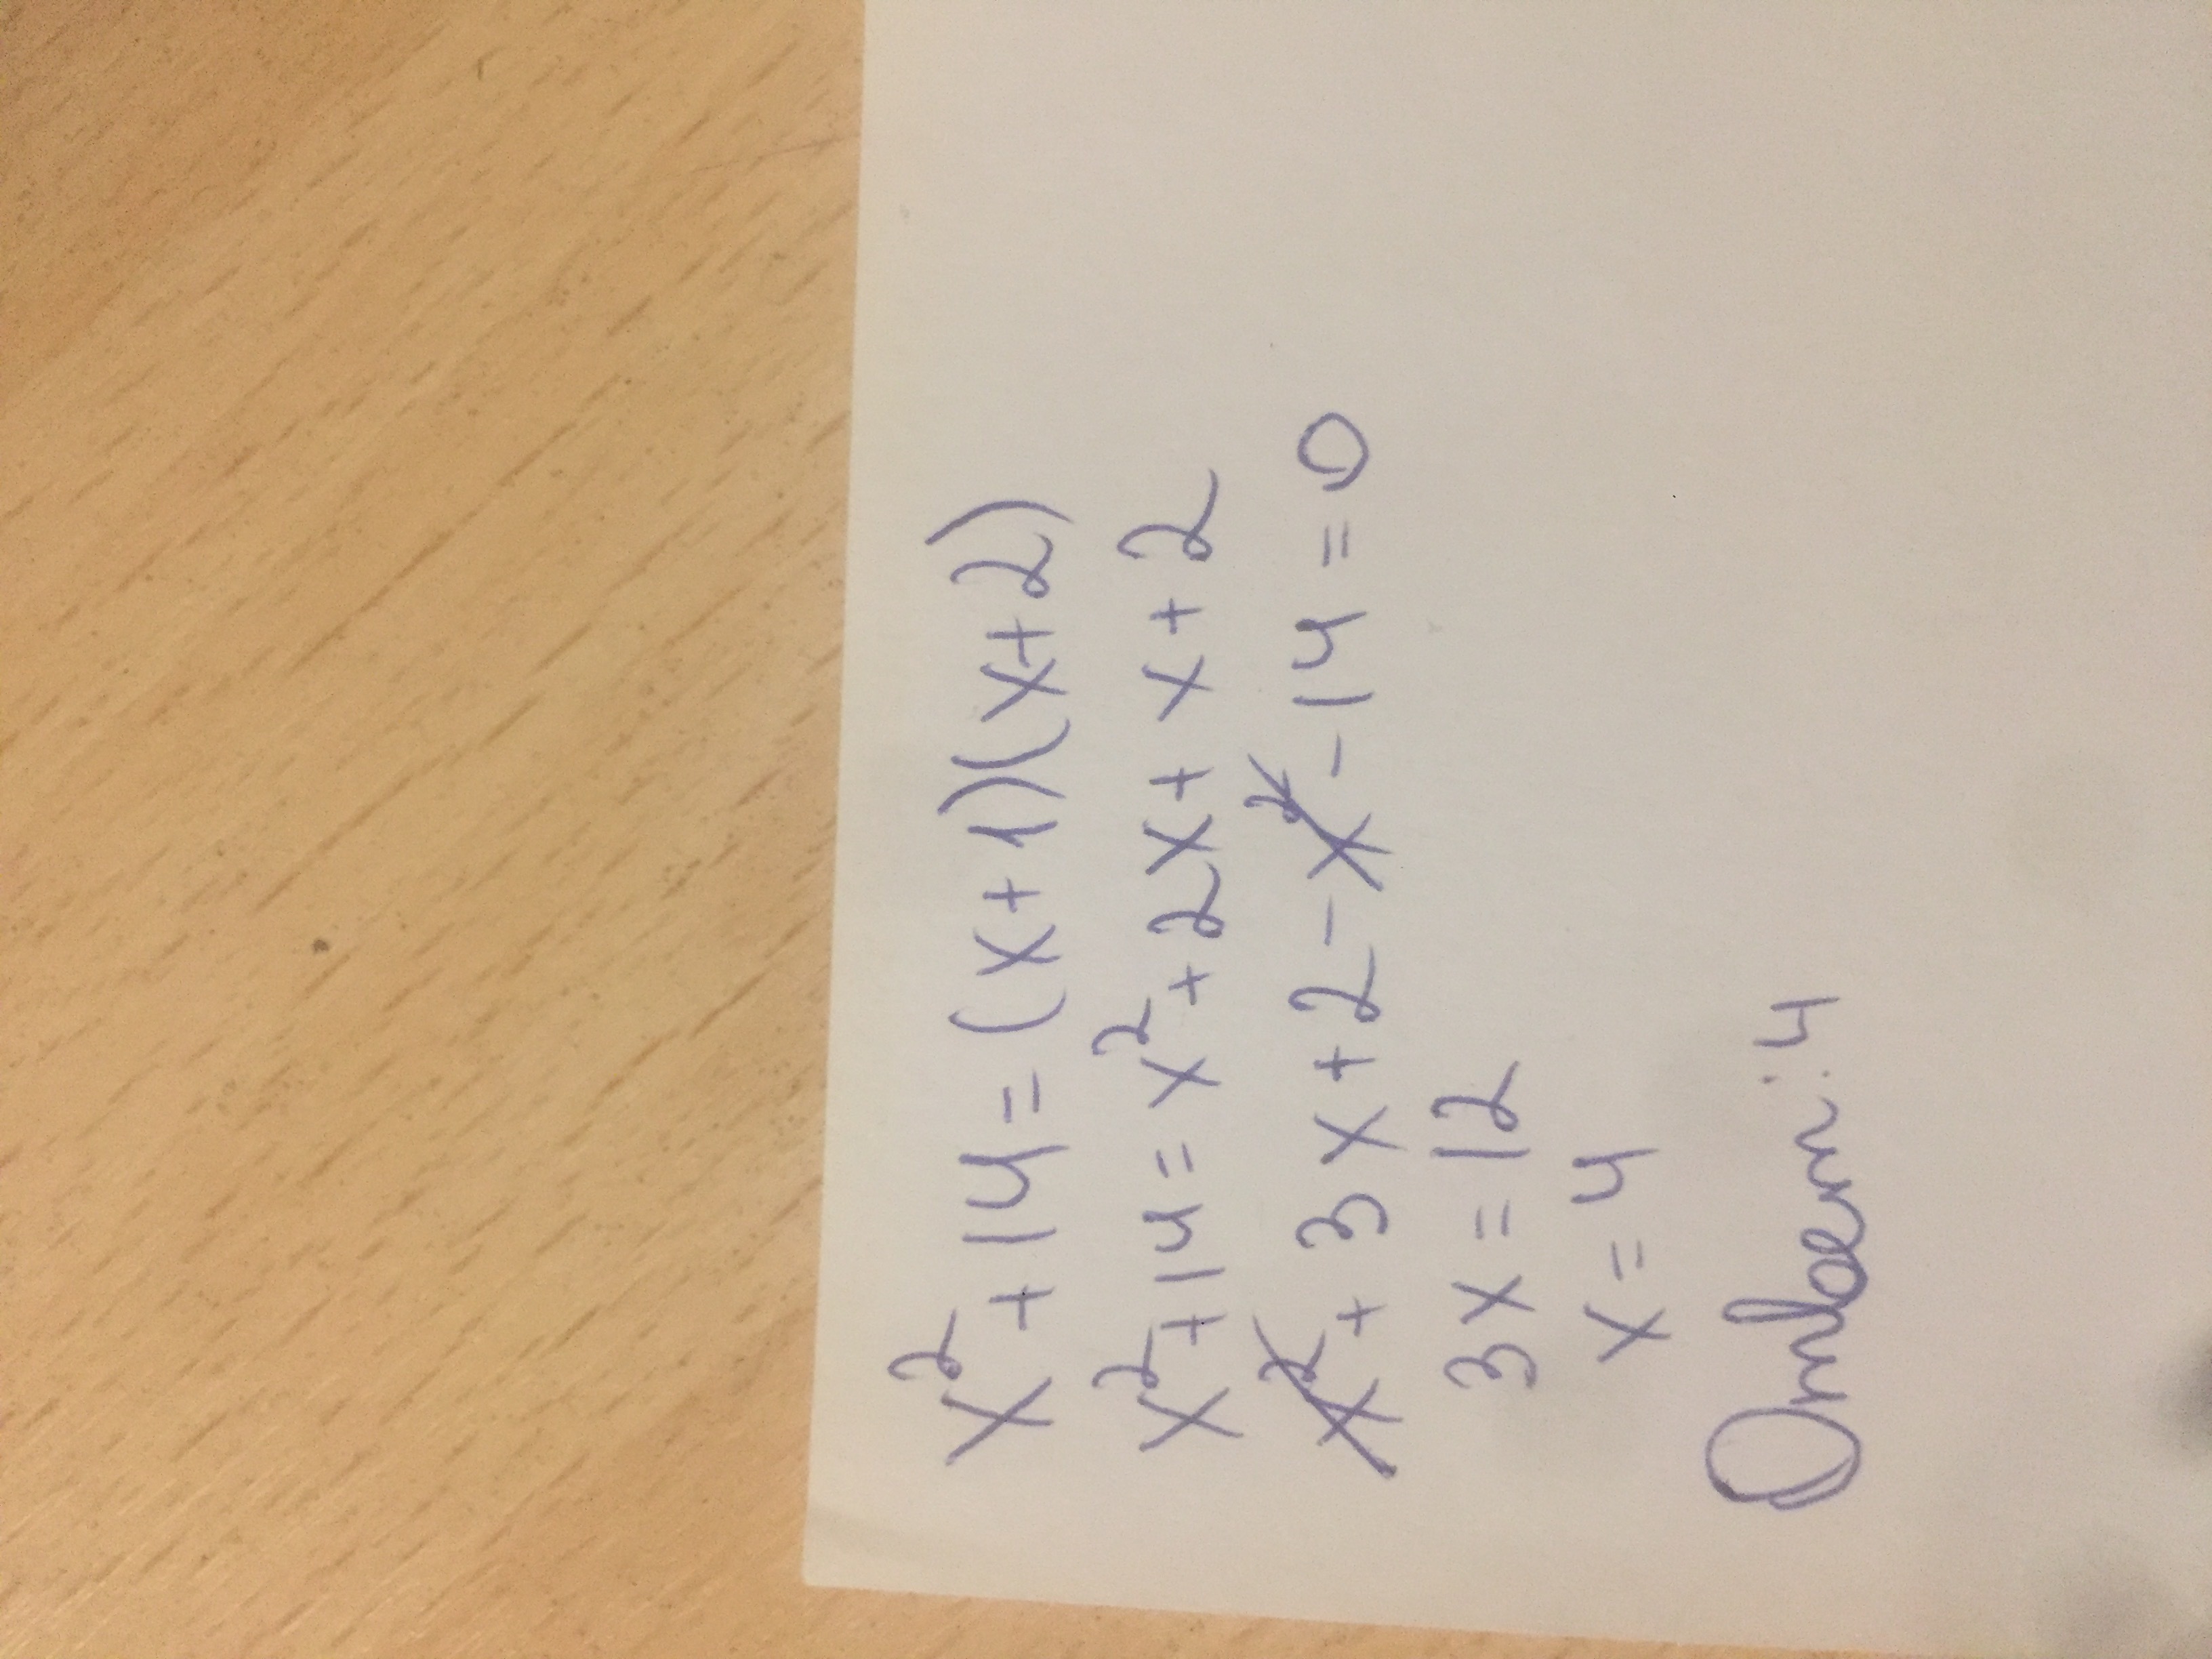 x² + 14 = (x+1)(x+2)
x² + 14 = x² + 2x + x + 2
x² + 3x + 2 - x² - 14 = 0
3x = 12
x = 4
Ответ: 4